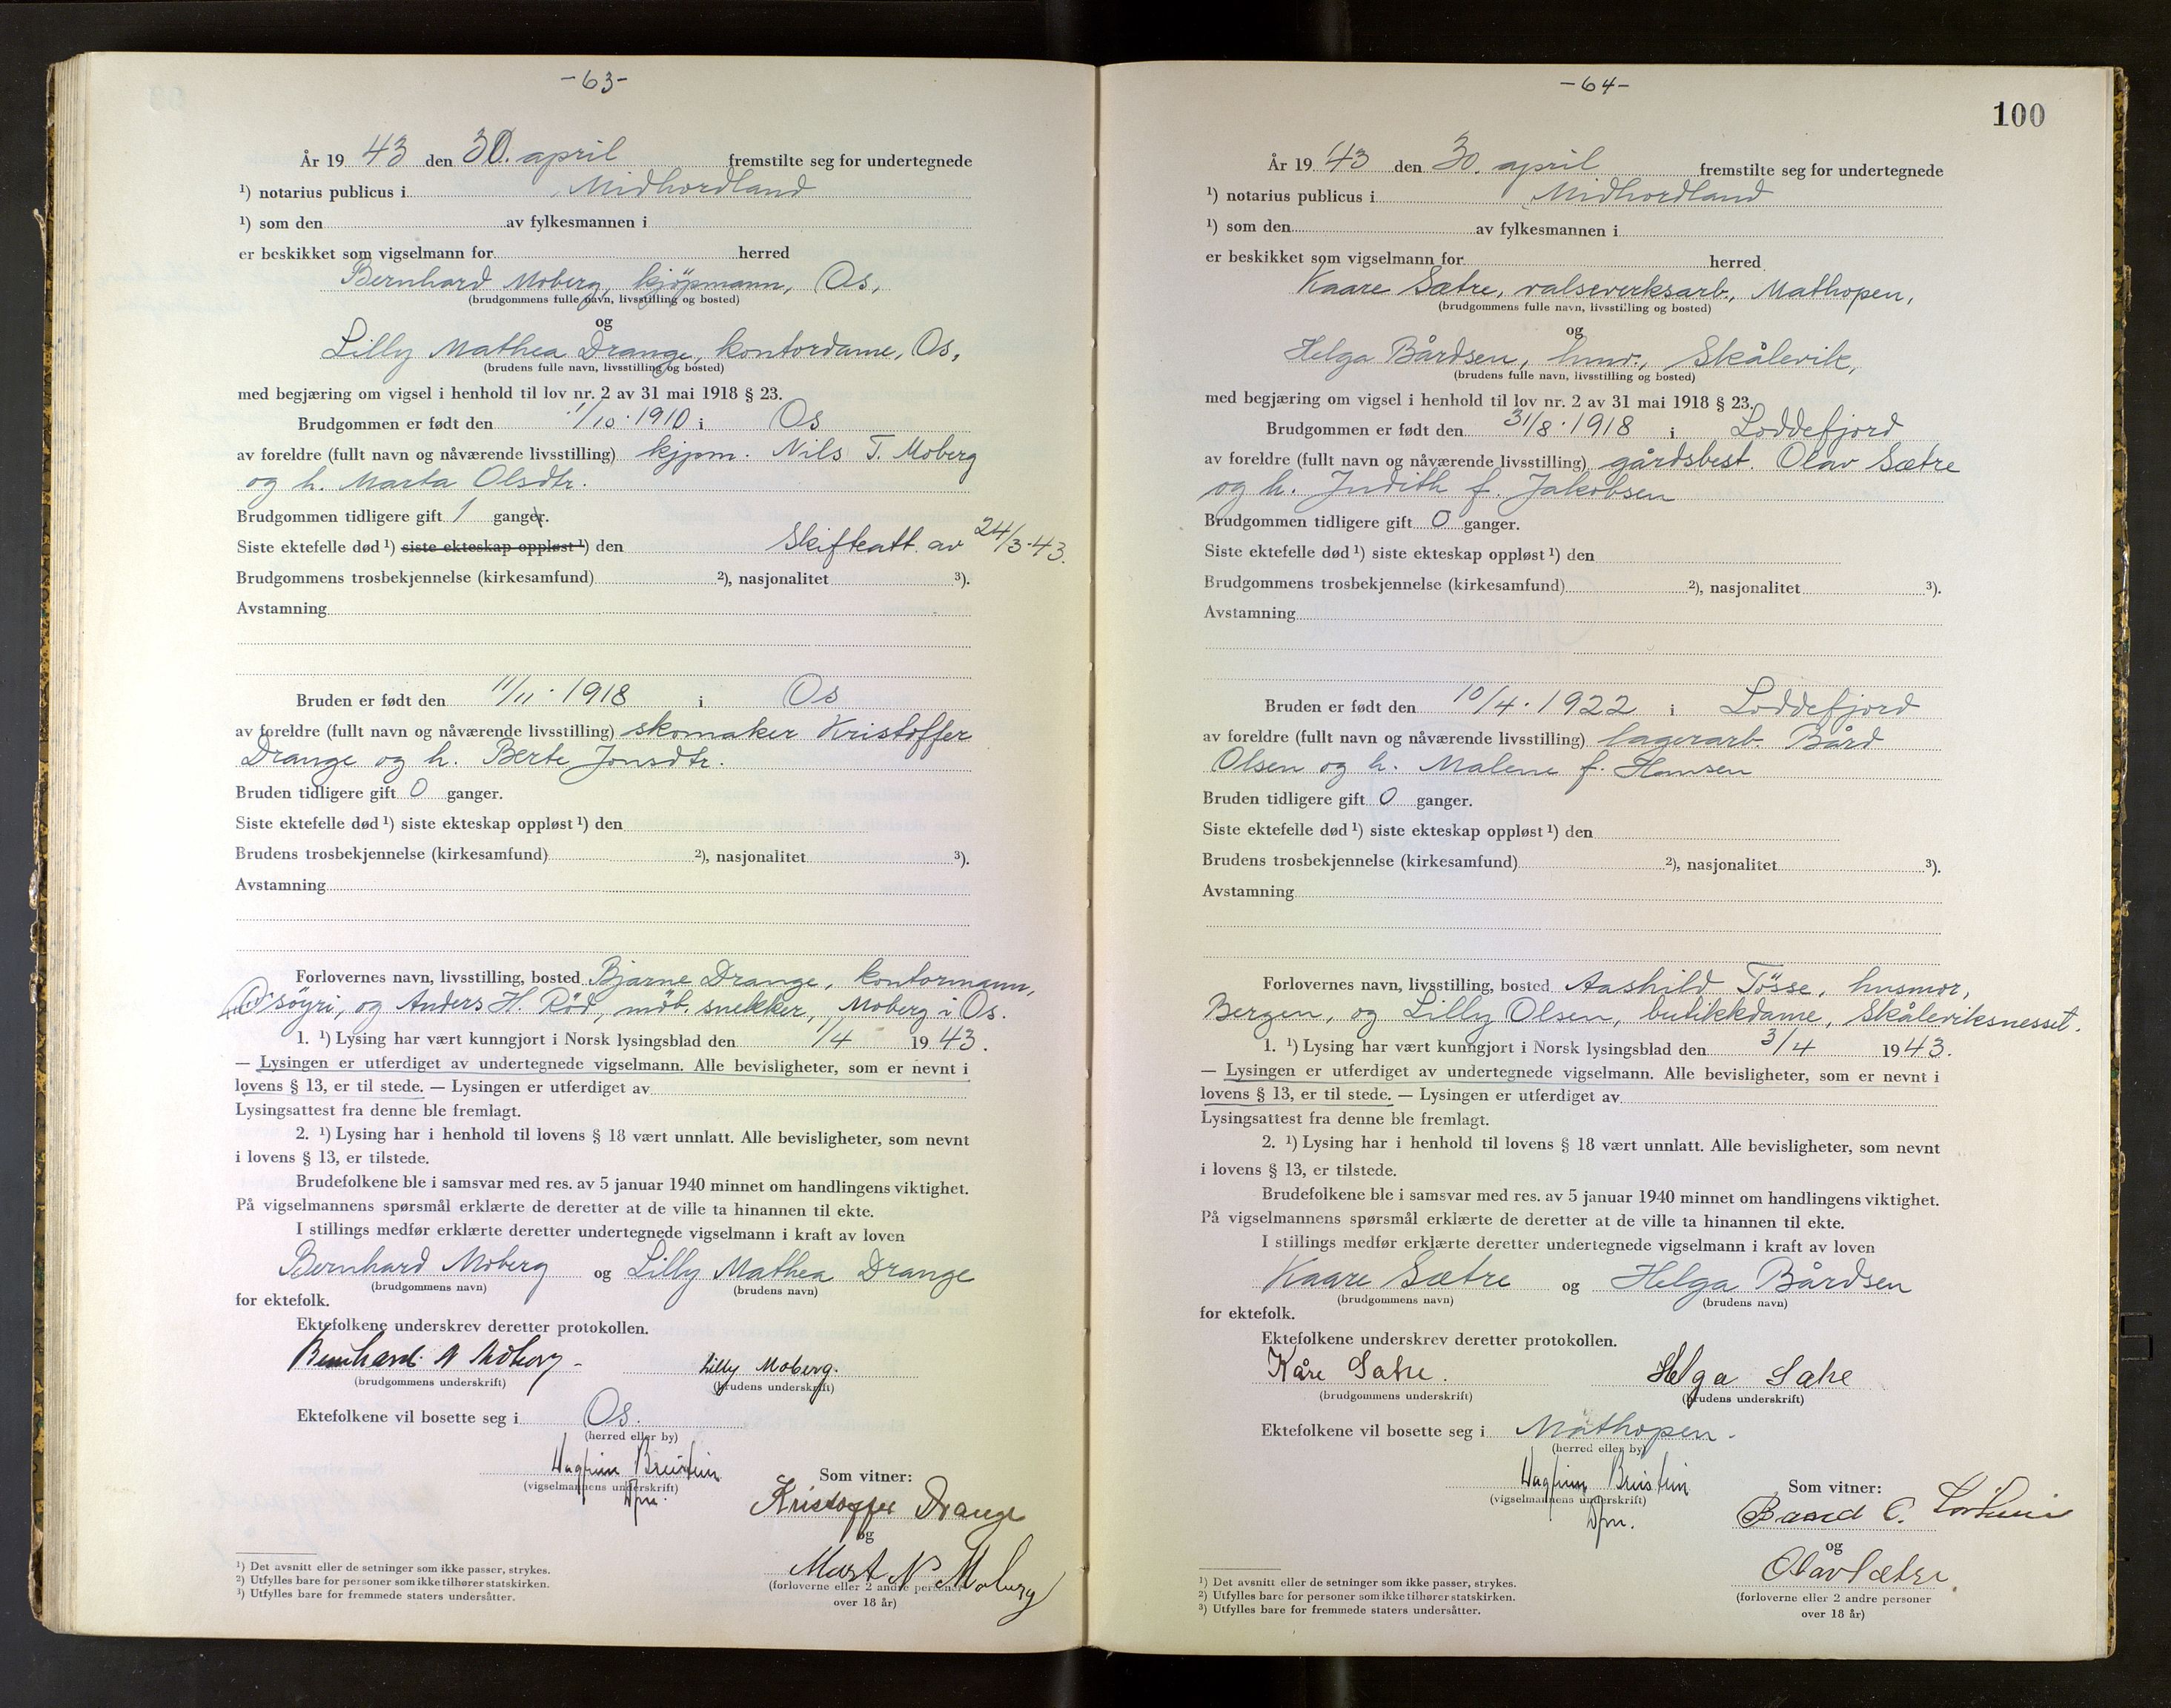 -63-
År 19 43 den 30. april fremstilte seg for undertegnede
¹) notarius publicus i Midhordland
¹) som den av fylkesmannen i
er beskikket som vigselmann for herred
Bernhard Moberg, kjøpmann, Os,
(brudgommens fulle navn, livsstilling og bosted)
og
Lilly Mathea Drange, kontordame, Os,
(brudens fulle navn, livsstilling og bosted)
med begjæring om vigsel i henhold til lov nr. 2 av 31 mai 1918 § 23.
Brudgommen er født den 1/10.1910 i Os
av foreldre (fullt navn og nåværende livsstilling) kjpm. Nils T. Moberg
og h. Marta Olsdtr.
Brudgommen tidligere gift 1 ganger.
Siste ektefelle død ¹) siste ekteskap oppløst ¹) den Skifteatt. av 24/3.43.
Brudgommens trosbekjennelse (kirkesamfund) ²), nasjonalitet ³).
Avstamning
Bruden er født den 11/11.1918 i Os
av foreldre (fullt navn og nåværende livsstilling) skomaker Kristoffer
Drange og h. Berte Jonsdtr.
Bruden tidligere gift 0 ganger.
Siste ektefelle død ¹) siste ekteskap oppløst ¹) den
Brudens trosbekjennelse (kirkesamfund) ²), nasjonalitet ³).
Avstamning
Forlovernes navn, livsstilling, bosted Bjarne Drange, kontormann,
søyri, og Anders H. Röd, möb. snekker, Moberg i Os.
1. ¹) Lysing har vært kunngjort i Norsk lysingsblad den 1/4 19 43.
— Lysingen er utferdiget av undertegnede vigselmann. Alle bevisligheter, som er nevnt i
lovens § 13, er til stede. — Lysingen er utferdiget av
Lysingsattest fra denne ble fremlagt.
2. ¹) Lysing har i henhold til lovens § 18 vært unnlatt. Alle bevisligheter, som nevnt
i lovens § 13, er tilstede.
Brudefolkene ble i samsvar med res. av 5 januar 1940 minnet om handlingens viktighet.
På vigselmannens spørsmål erklærte de deretter at de ville ta hinannen til ekte.
I stillings medfør erklærte deretter undertegnede vigselmann i kraft av loven
Bernhard Moberg og Lilly Mathea Drange
(brudgommens navn) (brudens navn)
for ektefolk.
Ektefolkene underskrev deretter protokollen.
Bernhard N Moberg - Lilly Moberg.
(brudgommens underskrift) (brudens underskrift)
Ektefolkene vil bosette seg i Os.
(herred eller by)
Hagfinn Breistein
(vigselmannens underskrift)
Dfm.
Som vitner:
Kristoffer Drange
og
Mart N Moberg
(forloverne eller 2 andre personer
over 18 år)
¹) Det avsnitt eller de setninger som ikke passer, strykes.
²) Utfylles bare for personer som ikke tilhører statskirken.
³) Utfylles bare for fremmede staters undersåtter.
-64-
100
År 19 43 den 30. april fremstilte seg for undertegnede
¹) notarius publicus i Midhordland
¹) som den av fylkesmannen i
er beskikket som vigselmann for herred
Kaare Sætre, valseverksarb., Mathopen,
(brudgommens fulle navn, livsstilling og bosted)
og
Helga Bårdsen, hmr., Skålevik,
(brudens fulle navn, livsstilling og bosted)
med begjæring om vigsel i henhold til lov nr. 2 av 31 mai 1918 § 23.
Brudgommen er født den 31/8.1918 i Loddefjord
av foreldre (fullt navn og nåværende livsstilling) gårdsbest. Olav Sætre
og h. Judith f. Jakobsen
Brudgommen tidligere gift 0 ganger.
Siste ektefelle død ¹) siste ekteskap oppløst ¹) den
Brudgommens trosbekjennelse (kirkesamfund) ²), nasjonalitet ³).
Avstamning
Bruden er født den 10/4.1922 i Loddefjord
av foreldre (fullt navn og nåværende livsstilling) lagerarb. Bård
Olsen og h. Malene f. Hansen
Bruden tidligere gift 0 ganger.
Siste ektefelle død ¹) siste ekteskap oppløst ¹) den
Brudens trosbekjennelse (kirkesamfund) ²), nasjonalitet ³).
Avstamning
Forlovernes navn, livsstilling, bosted Aashild Tösse, husmor,
Bergen, og Lilly Olsen, butikkdame, Skåleviksnesset.
1. ¹) Lysing har vært kunngjort i Norsk lysingsblad den 3/4 19 43.
— Lysingen er utferdiget av undertegnede vigselmann. Alle bevisligheter, som er nevnt i
lovens § 13, er til stede. — Lysingen er utferdiget av
Lysingsattest fra denne ble fremlagt.
2. ¹) Lysing har i henhold til lovens § 18 vært unnlatt. Alle bevisligheter, som nevnt
i lovens § 13, er tilstede.
Brudefolkene ble i samsvar med res. av 5 januar 1940 minnet om handlingens viktighet.
På vigselmannens spørsmål erklærte de deretter at de ville ta hinannen til ekte.
I stillings medfør erklærte deretter undertegnede vigselmann i kraft av loven
Kaare Sætre og Helga Bårdsen
(brudgommens navn) (brudens navn)
for ektefolk.
Ektefolkene underskrev deretter protokollen.
Kåre Sætre. Helga Sætre
(brudgommens underskrift) (brudens underskrift)
Ektefolkene vil bosette seg i Mathopen.
(herred eller by)
Hagfinn Breistein
(vigselmannens underskrift)
Dfm.
Som vitner:
Baard O.
og
Olav Sætre.
(forloverne eller 2 andre personer
over 18 år)
¹) Det avsnitt eller de setninger som ikke passer, strykes.
²) Utfylles bare for personer som ikke tilhører statskirken.
³) Utfylles bare for fremmede staters undersåtter.